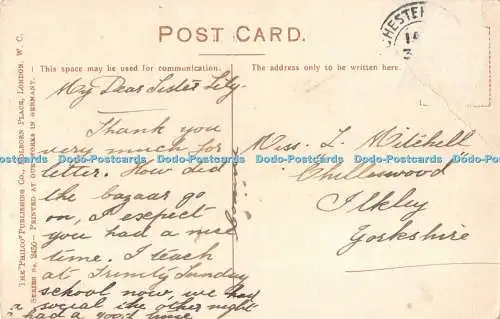 POST CARD.
This space may be used for communication.
The address only to be written here.
THE "PHILCO" PUBLISHING CO., HOLBORN PLACE, LONDON, W. C.
SERIES NO. 2450 – PRINTED AT OUR WORKS IN GERMANY.
CHESTER
My Dear Sister Lily.
Thank you
very much for
letter. How did
the bazaar go
on, I expect
you had a nice
time. I teach
at Trinity Sunday
school now, we had
a social the other night
& had a good time
Miss. L. Mitchell
Ilkley
Yorkshire
Dodo-Postcards Dodo-Postcards Dodo-Postcards Dodo-Postcards Dodo-Postcards Dodo-Postcards